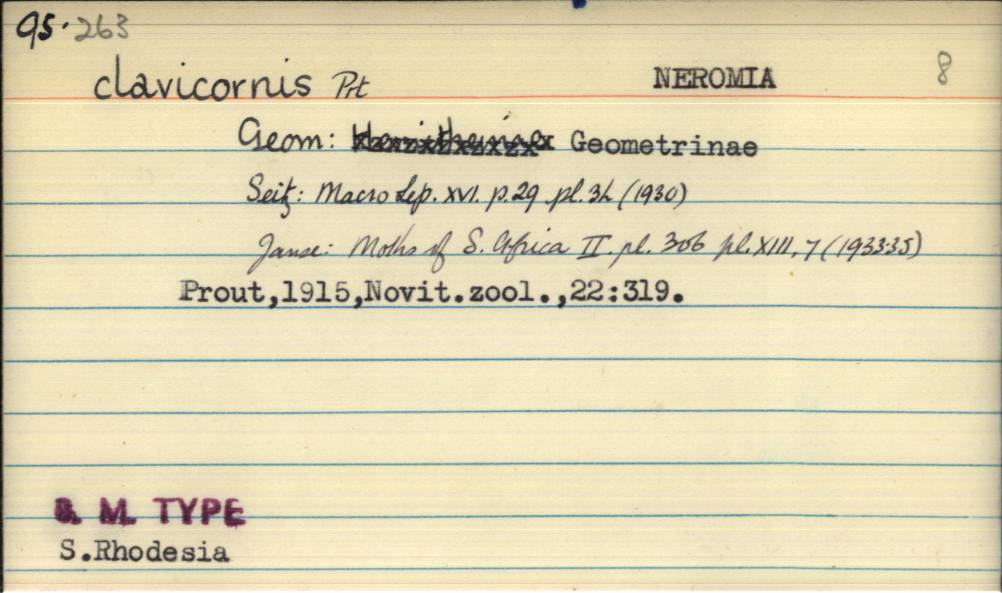 95.263
clavicornis Prt NEROMIA 8
Geom: Hemitheinae Geometrinae
Seitz: Macro Lep. XVI. p.29 pl.3h (1930)
Janse: Moths of S. Africa II. pl. 306 pl. XIII, 7 (1933-35)
Prout,1915,Novit.zool.,22:319.
B. M. TYPE
S.Rhodesia